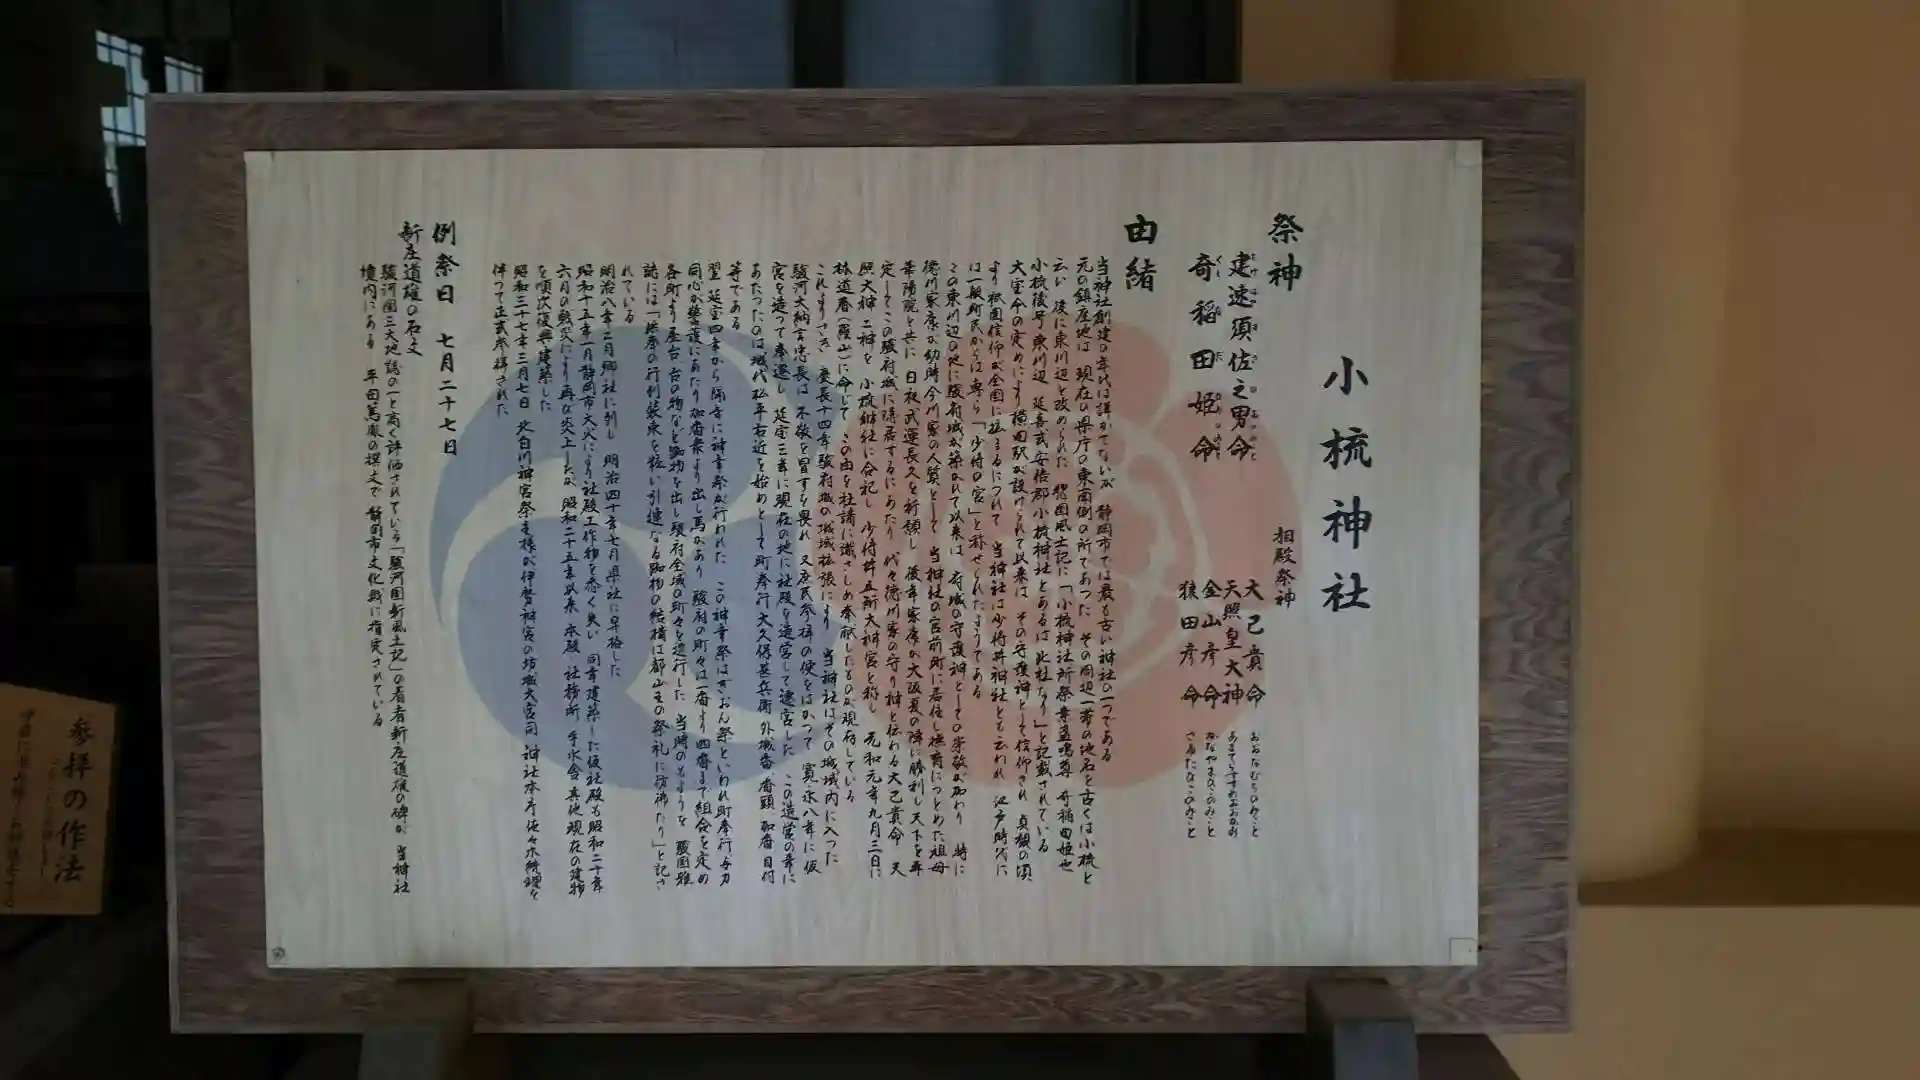 小梳神社
祭神
建速須佐之男命
奇稲田姫命
相殿祭神
大己貴命 おおなむちのみこと
天照皇大神 あまてらすすめおおかみ
金山彦命 かなやまひこのみこと
猿田彦命 さるたひこのみこと
由緒
当神社創建の年代は詳かでないが 静岡市では最も古い神社の一つである
元の鎮座地は 現在の県庁の東南側の所であった その周辺一帯の地名を古くは小梳と
云い 後に東川辺と改められた 惣国風土記に「小梳神社所祭素盞嗚尊 奇稲田姫也
小梳後号東川辺 延喜式安倍郡小梳神社とあるは此社なり」と記載されている
大宝令の定めにより横田駅が設けられて以来は その守護神として信仰され 貞観の頃
より祇園信仰が全国に拡まるにつれて 当神社は少将井神社とも云われ 江戸時代に
は一般町民からは専ら「少将の宮」と称せられたようである
この東川辺の地に駿府城が築かれて以来は 府城の守護神としての崇敬が加わり 特に
徳川家康が幼時今川家の人質として 当神社の宮前町に居住し撫育につとめた祖母
華陽院と共に 日夜武運長久を祈願し 後年家康が大阪夏の陣に勝利し天下を平
定してこの駿府城に隠居するにあたり 代々徳川家の守り神と伝わる大己貴命 天
照大神 二神を 小梳神社に合祀し 少将井五所大神宮と称し 元和元年九月三日に
林道春(羅山)に命じて この由を社請に識さしめ奉献したものが現存している
これよりさき 慶長十四年駿府城の城域拡張により 当神社はその城域内に入った
駿河大納言忠長は 不敬を冒すを畏れ 又庶民参拝の便をはかつて 寛永八年に仮
宮を造つて奉遷し 延宝三年に現在の地に社殿を造営して遷宮した この造営の幸に
あたったのは城代松平右近を始めとして町奉行大久保甚兵衛外城番 番頭 加番 目付
等である
翌 延宝四年から隔年に神幸祭が行われた この神幸祭はぎおん祭といわれ町奉行 与力
同心が警護にあたり加番衆より出し馬があり 駿府の町々は一番より四番まで組合を定め
各町より屋台 台の物など 物を出し駿府全域の町々を巡行した 当時のもようを 駿国雅
志には「供奉の行列装束を粧い引連なる 物の結構は都山王の祭礼に彷彿たり」と記さ
れている
明治八年二月郷社に列し 明治四十年七月県社に昇格した
昭和十五年一月静岡市大火により社殿工作物を悉く失い 同年建築した仮社殿も昭和二十年
六月の戦災により再び炎上したが 昭和二十五年以来 本殿 社務所 手水舎 其他現在の建物
を順次復興建築した
昭和三十七年三月七日 北白川神宮祭主様が伊勢神宮の坊城大宮司 神社本庁佐々木統理を
伴つて正式参拝された
例祭日 七月二十七日
新庄道雄の石文
駿河国三大地誌の一と高く評価されている「駿河国新風土記」の著者新庄道雄の碑が 当神社
境内にある 平田篤胤の撰文で 静岡市文化財に指定されている
参拝の作法